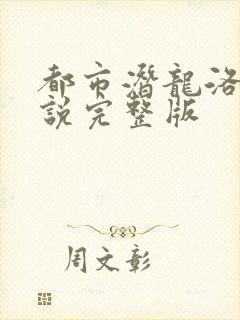 都市潛龍洛
說完整版
周文彰